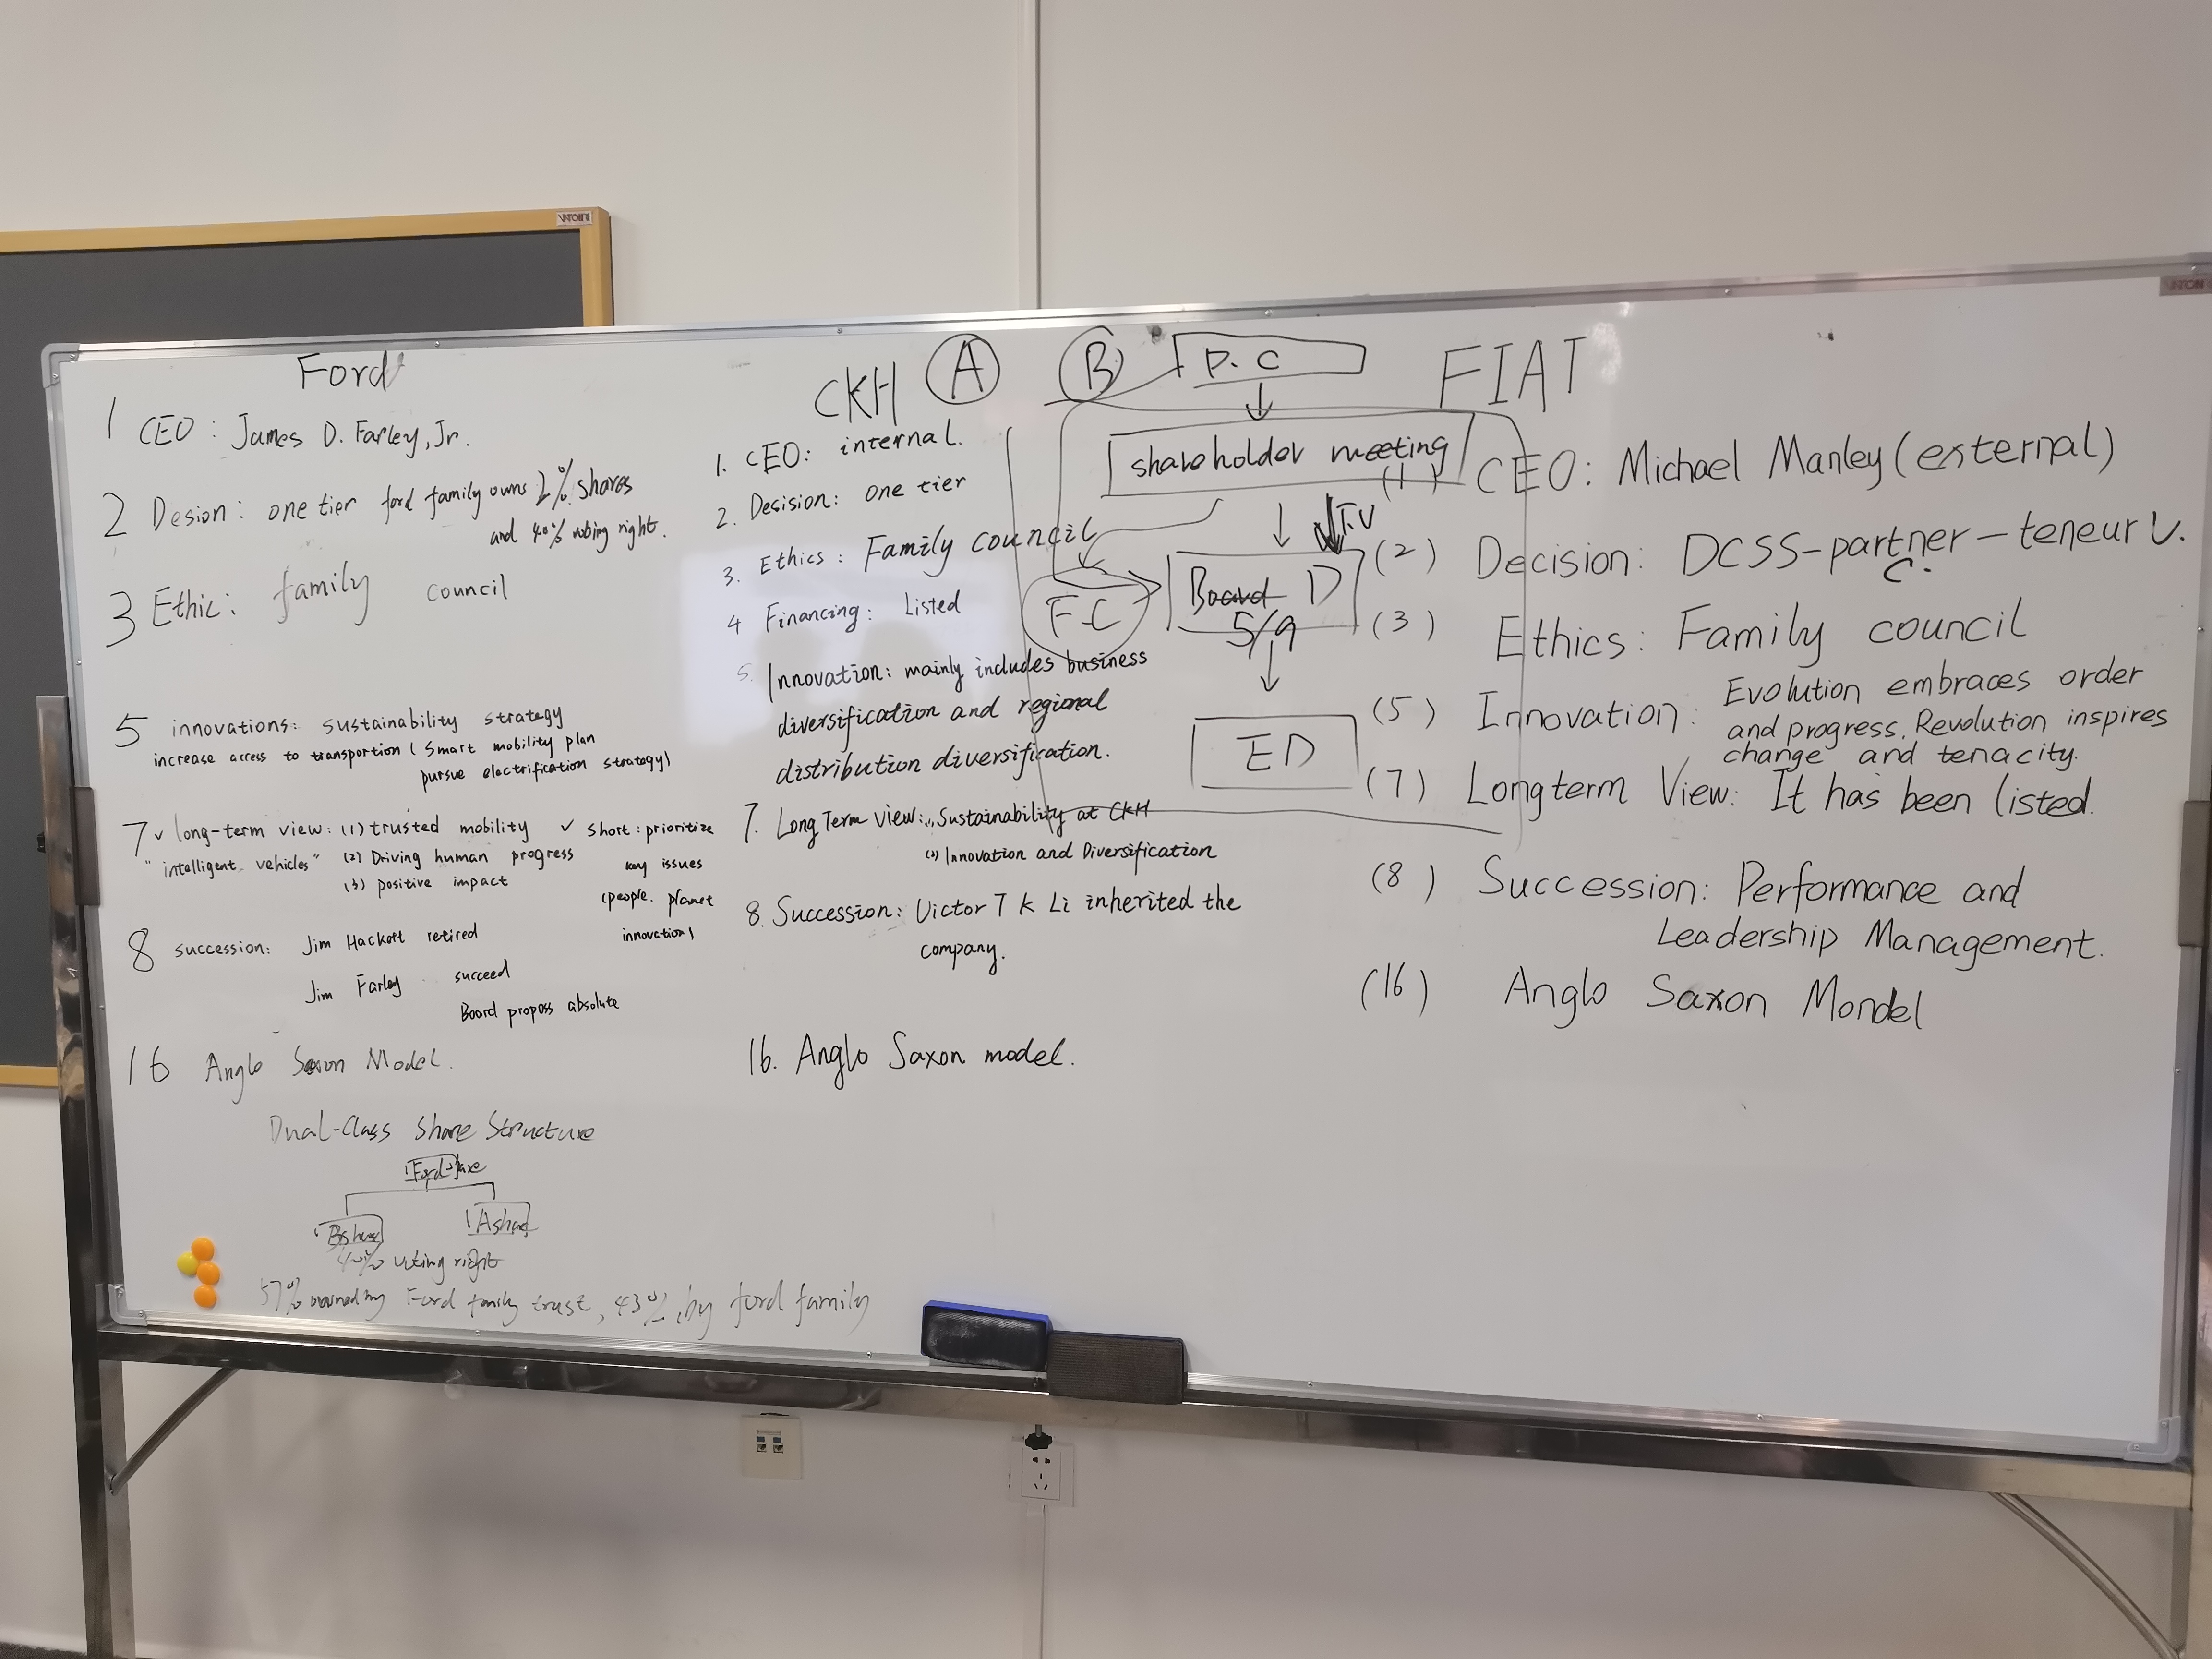 VATOINI
Ford
1 CEO : James D. Farley, Jr.
2 Desion : one tier ford family owns 2% shares
and 40% voting right.
3 Ethic : family council
5 innovations: sustainability strategy
increase access to transportion ( Smart mobility plan
pursue electrification strategy)
7 ✓ long-term view: (1) trusted mobility ✓ short : prioritize
"intelligent vehicles" (2) Driving human progress key issues
(3) positive impact (people. planet
innovation)
8 succession: Jim Hackett retired
Jim Farley succeed
Board proposs absolute
16 Anglo Saxon Model.
Dual-Class Share Structure
Ford
B share A share
40% voting right
57% owned by Ford family trust, 43% by ford family
CKH A
1. CEO: internal.
2. Desision: one tier
3. Ethics : Family council
4 Financing: Listed
5. Innovation: mainly includes business
diversification and regional
distribution diversification.
7. Long Term View: Sustainability at CKH
(2) Innovation and Diversification
8. Succession: Victor T K Li inherited the
company.
16. Anglo Saxon model.
B
P. C
shareholder meeting
T.V
F-C
Board D
5/9
ED
FIAT
(1) CEO: Michael Manley (external)
(2) Decision: DCSS-partner-teneur V.
C.
(3) Ethics: Family council
(5) Innovation: Evolution embraces order
and progress, Revolution inspires
change and tenacity.
(7) Longterm View: It has been listed.
(8) Succession: Performance and
Leadership Management.
(16) Anglo Saxon Mondel